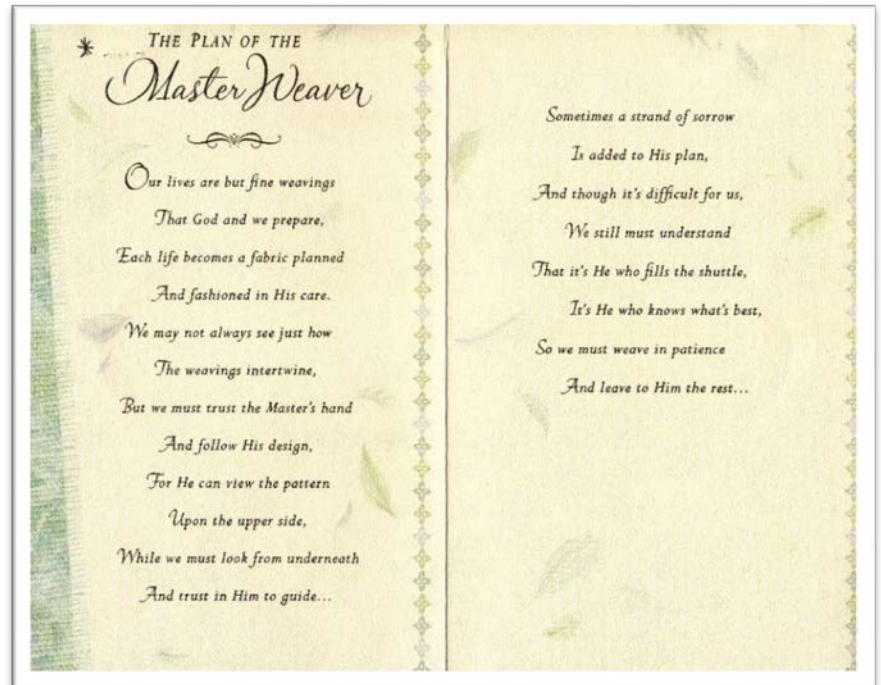 THE PLAN OF THE
Master Weaver
Our lives are but fine weavings
That God and we prepare,
Each life becomes a fabric planned
And fashioned in His care.
We may not always see just how
The weavings intertwine,
But we must trust the Master's hand
And follow His design,
For He can view the pattern
Upon the upper side,
While we must look from underneath
And trust in Him to guide...
Sometimes a strand of sorrow
Is added to His plan,
And though it's difficult for us,
We still must understand
That it's He who fills the shuttle,
It's He who knows what's best,
So we must weave in patience
And leave to Him the rest...